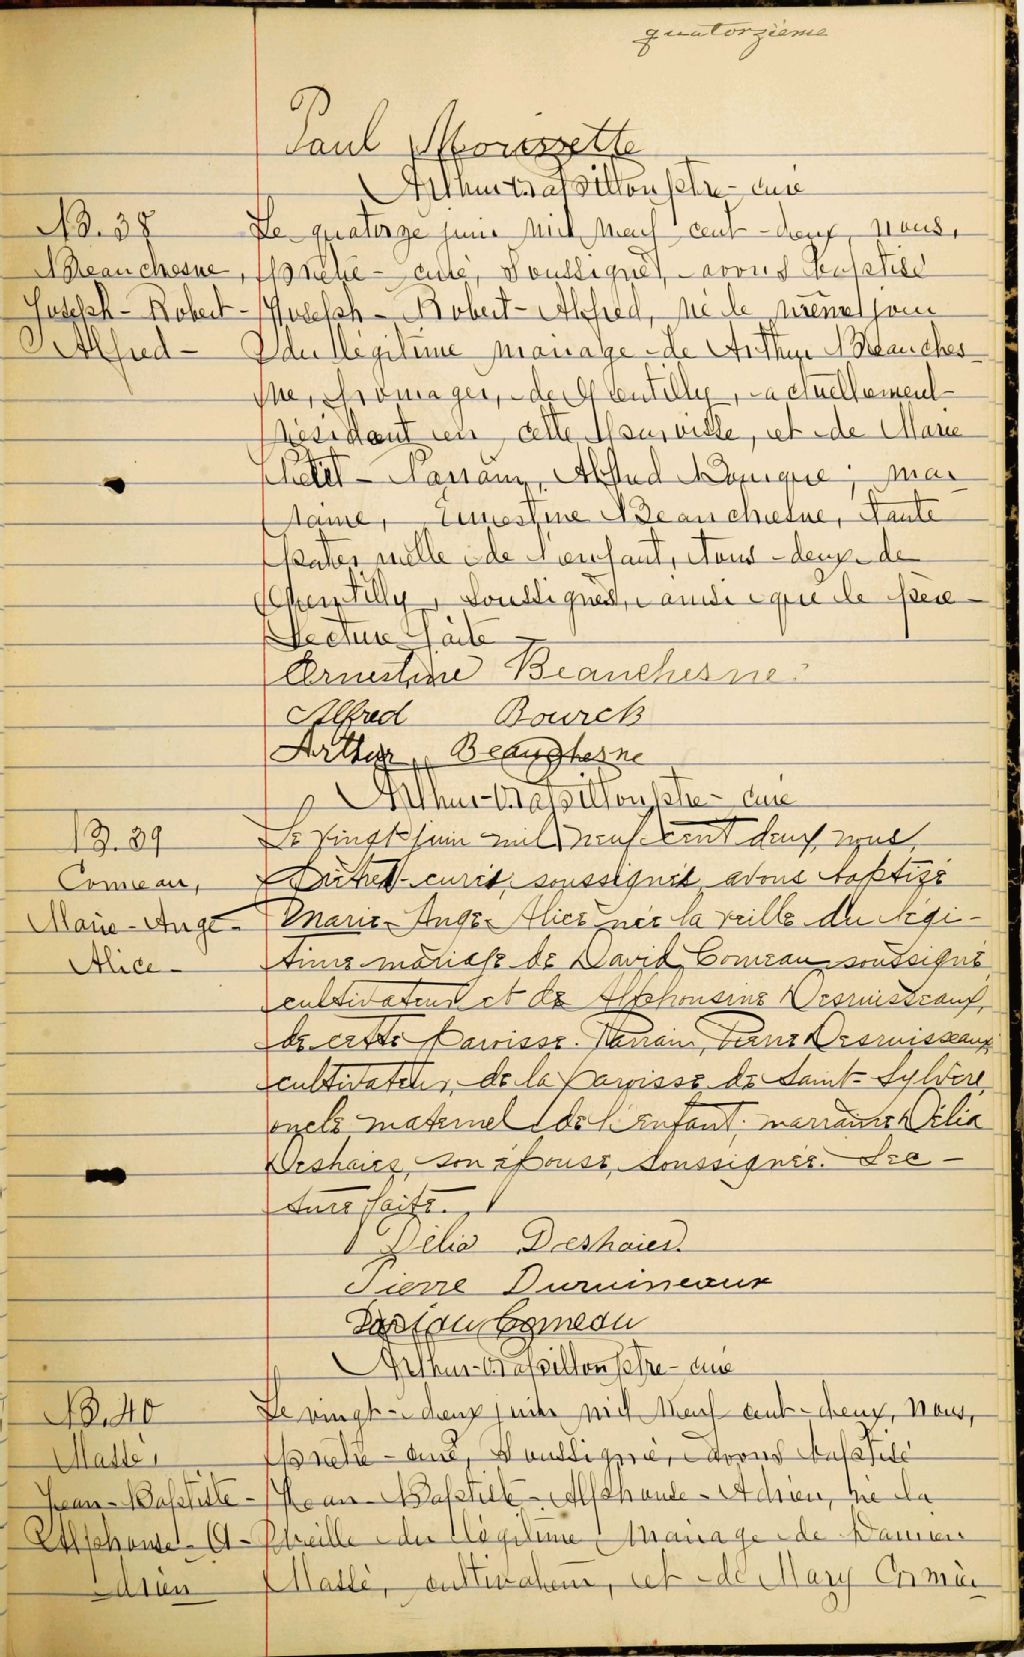 quatorzième
Paul Morissette
Arthur Papillon ptre-curé
B. 38
Beauchesne,
Joseph-Robert-
Alfred-
Le quatorze juin mil neuf cent-deux, nous,
prêtre-curé, soussigné, avons baptisé
Joseph-Robert-Alfred, né le même jour
du légitime mariage de Arthur Beauches-
ne, fromager, de Gentilly, actuellement
résidant en cette paroisse, et de Marie
Petit-Parrain, Alfred Bourque; mar-
raine, Ernestine Beauchesne, tante
paternelle de l'enfant, tous-deux de
Gentilly, soussignés, ainsi que le père-
Lecture faite-
Ernestine Beauchesne.
Alfred Bourck
Arthur Beauchesne
Arthur Papillon ptre-curé
B. 39
Comeau,
Marie-Ange-
Alice-
Le vingt juin mil neuf cent deux, nous,
prêtre-curé, soussigné, avons baptizé
Marie-Ange-Alice née la veille du légi-
time mariage de David Comeau soussigné
cultivateur et de Alphonsine Desruisseaux,
de cette paroisse. Parrain, Pierre Desruisseaux
cultivateur, de la paroisse de Saint-Sylvère,
oncle maternel de l'enfant; marraine Délia
Deshaies, son épouse, soussignée. Lec-
ture faite.
Délia Deshaies.
Pierre Duruineaux
Comeau
Arthur Papillon ptre-curé
B. 40
Massé,
Jean-Baptiste-
Alphonse-A-
drien
Le vingt-deux juin mil neuf cent-deux, nous,
prêtre-curé, soussigné, avons baptisé
Jean-Baptiste-Alphonse-Adrien, né la
veille du légitime mariage de Damien
Massé, cultivateur, et de Mary Cormier